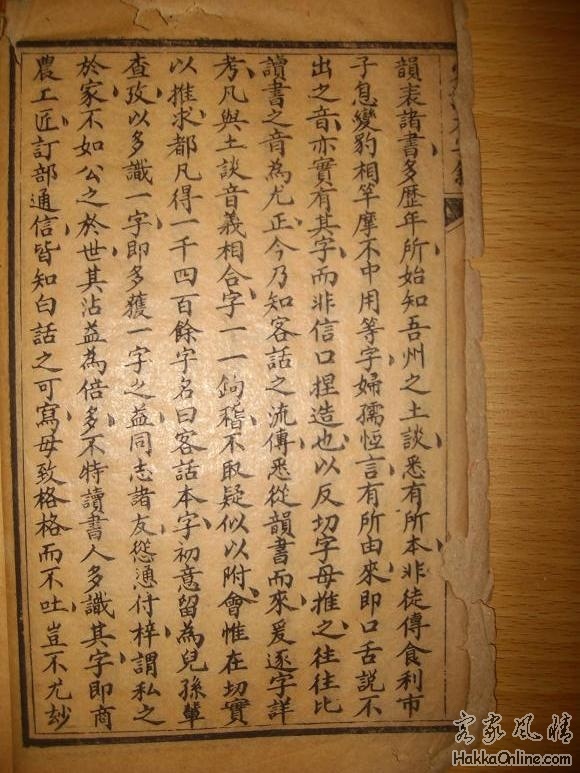 韻表諸書多歷年所始知吾州之土談悉有所本非徒傳食利市
子息變豹相竿摩不中用等字婦孺恆言有所由來即口舌說不
出之音亦實有其字而非信口捏造也以反切字母推之往往比
讀書之音為尤正今乃知客話之流傳悉從韻書而來爰逐字詳
考凡與土談音義相合字一一鉤稽不取疑似以附會惟在切實
以推求都凡得一千四百餘字名曰客話本字初意留為兒孫輩
查攷以多識一字即多獲一字之益同志諸友慫通付梓謂私之
於家不如公之於世其沾益為倍多不特讀書人多識其字即商
農工匠訂部通信皆知白話之可寫毋致格格而不吐豈不尤玅
客家風情
HakkaOnline.com